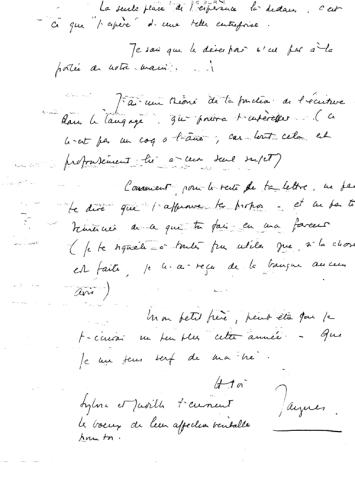 La seule place de l'espérance là-dedans, c'est
ce que "l'opéré" d'une telle entreprise.
Je sais que le désespoir n'est pas à la
portée de notre main. . . .
J'ai une théorie de la fonction de l'écriture
dans le langage qui pourra t'intéresser (ce
n'est pas un coq à l'âne, car tout cela est
profondément lié à mon seul sujet)
Comment, pour le reste de ta lettre, ne pas
te dire que j'approuve tes propos - et ne pas te
remercier de ce que tu fais en ma faveur
(je te signale à toute fin utile que, si la chose
est faite, je n'ai reçu de la banque aucun
avis)
Mon petit frère, peut-être que je
t'écrirai un peu plus cette année - Que
je me sens serf de ma vie.
A toi
Jacques
Sylvia et Judith t'envoient
les voeux de leur affection véritable
pour toi.